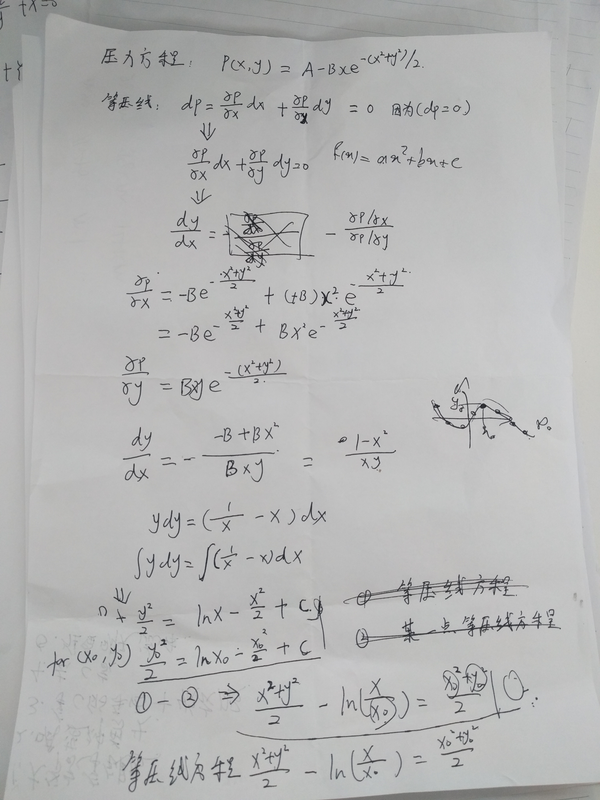 压力方程: P(x,y) = A-Bxe^{-(x²+y²)/2}.
等压线: dp = ∂p/∂x dx + ∂p/∂y dy = 0 因为(dp=0)
⇓
∂p/∂x dx + ∂p/∂y dy=0 f(x)=ax²+bx+c
⇓
dy/dx = - (∂p/∂x)/(∂p/∂y)
∂p/∂x = -Be^{-(x²+y²)/2} + (+B)x² e^{-(x²+y²)/2}
= -Be^{-(x²+y²)/2} + Bx²e^{-(x²+y²)/2}
∂p/∂y = Bxye^{-(x²+y²)/2}
dy/dx = - (-B+Bx²)/(Bxy) = (1-x²)/(xy)
ydy = (1/x - x)dx
∫ydy = ∫(1/x - x)dx
⇓
y²/2 = lnx - x²/2 + C
① 等压线方程
for (x₀,y₀) y₀²/2 = lnx₀ - x₀²/2 + C
② 某一点等压线方程
①-② ⇒ (x²+y²)/2 - ln(x/x₀) = (x₀²+y₀²)/2
等压线方程 (x²+y²)/2 - ln(x/x₀) = (x₀²+y₀²)/2